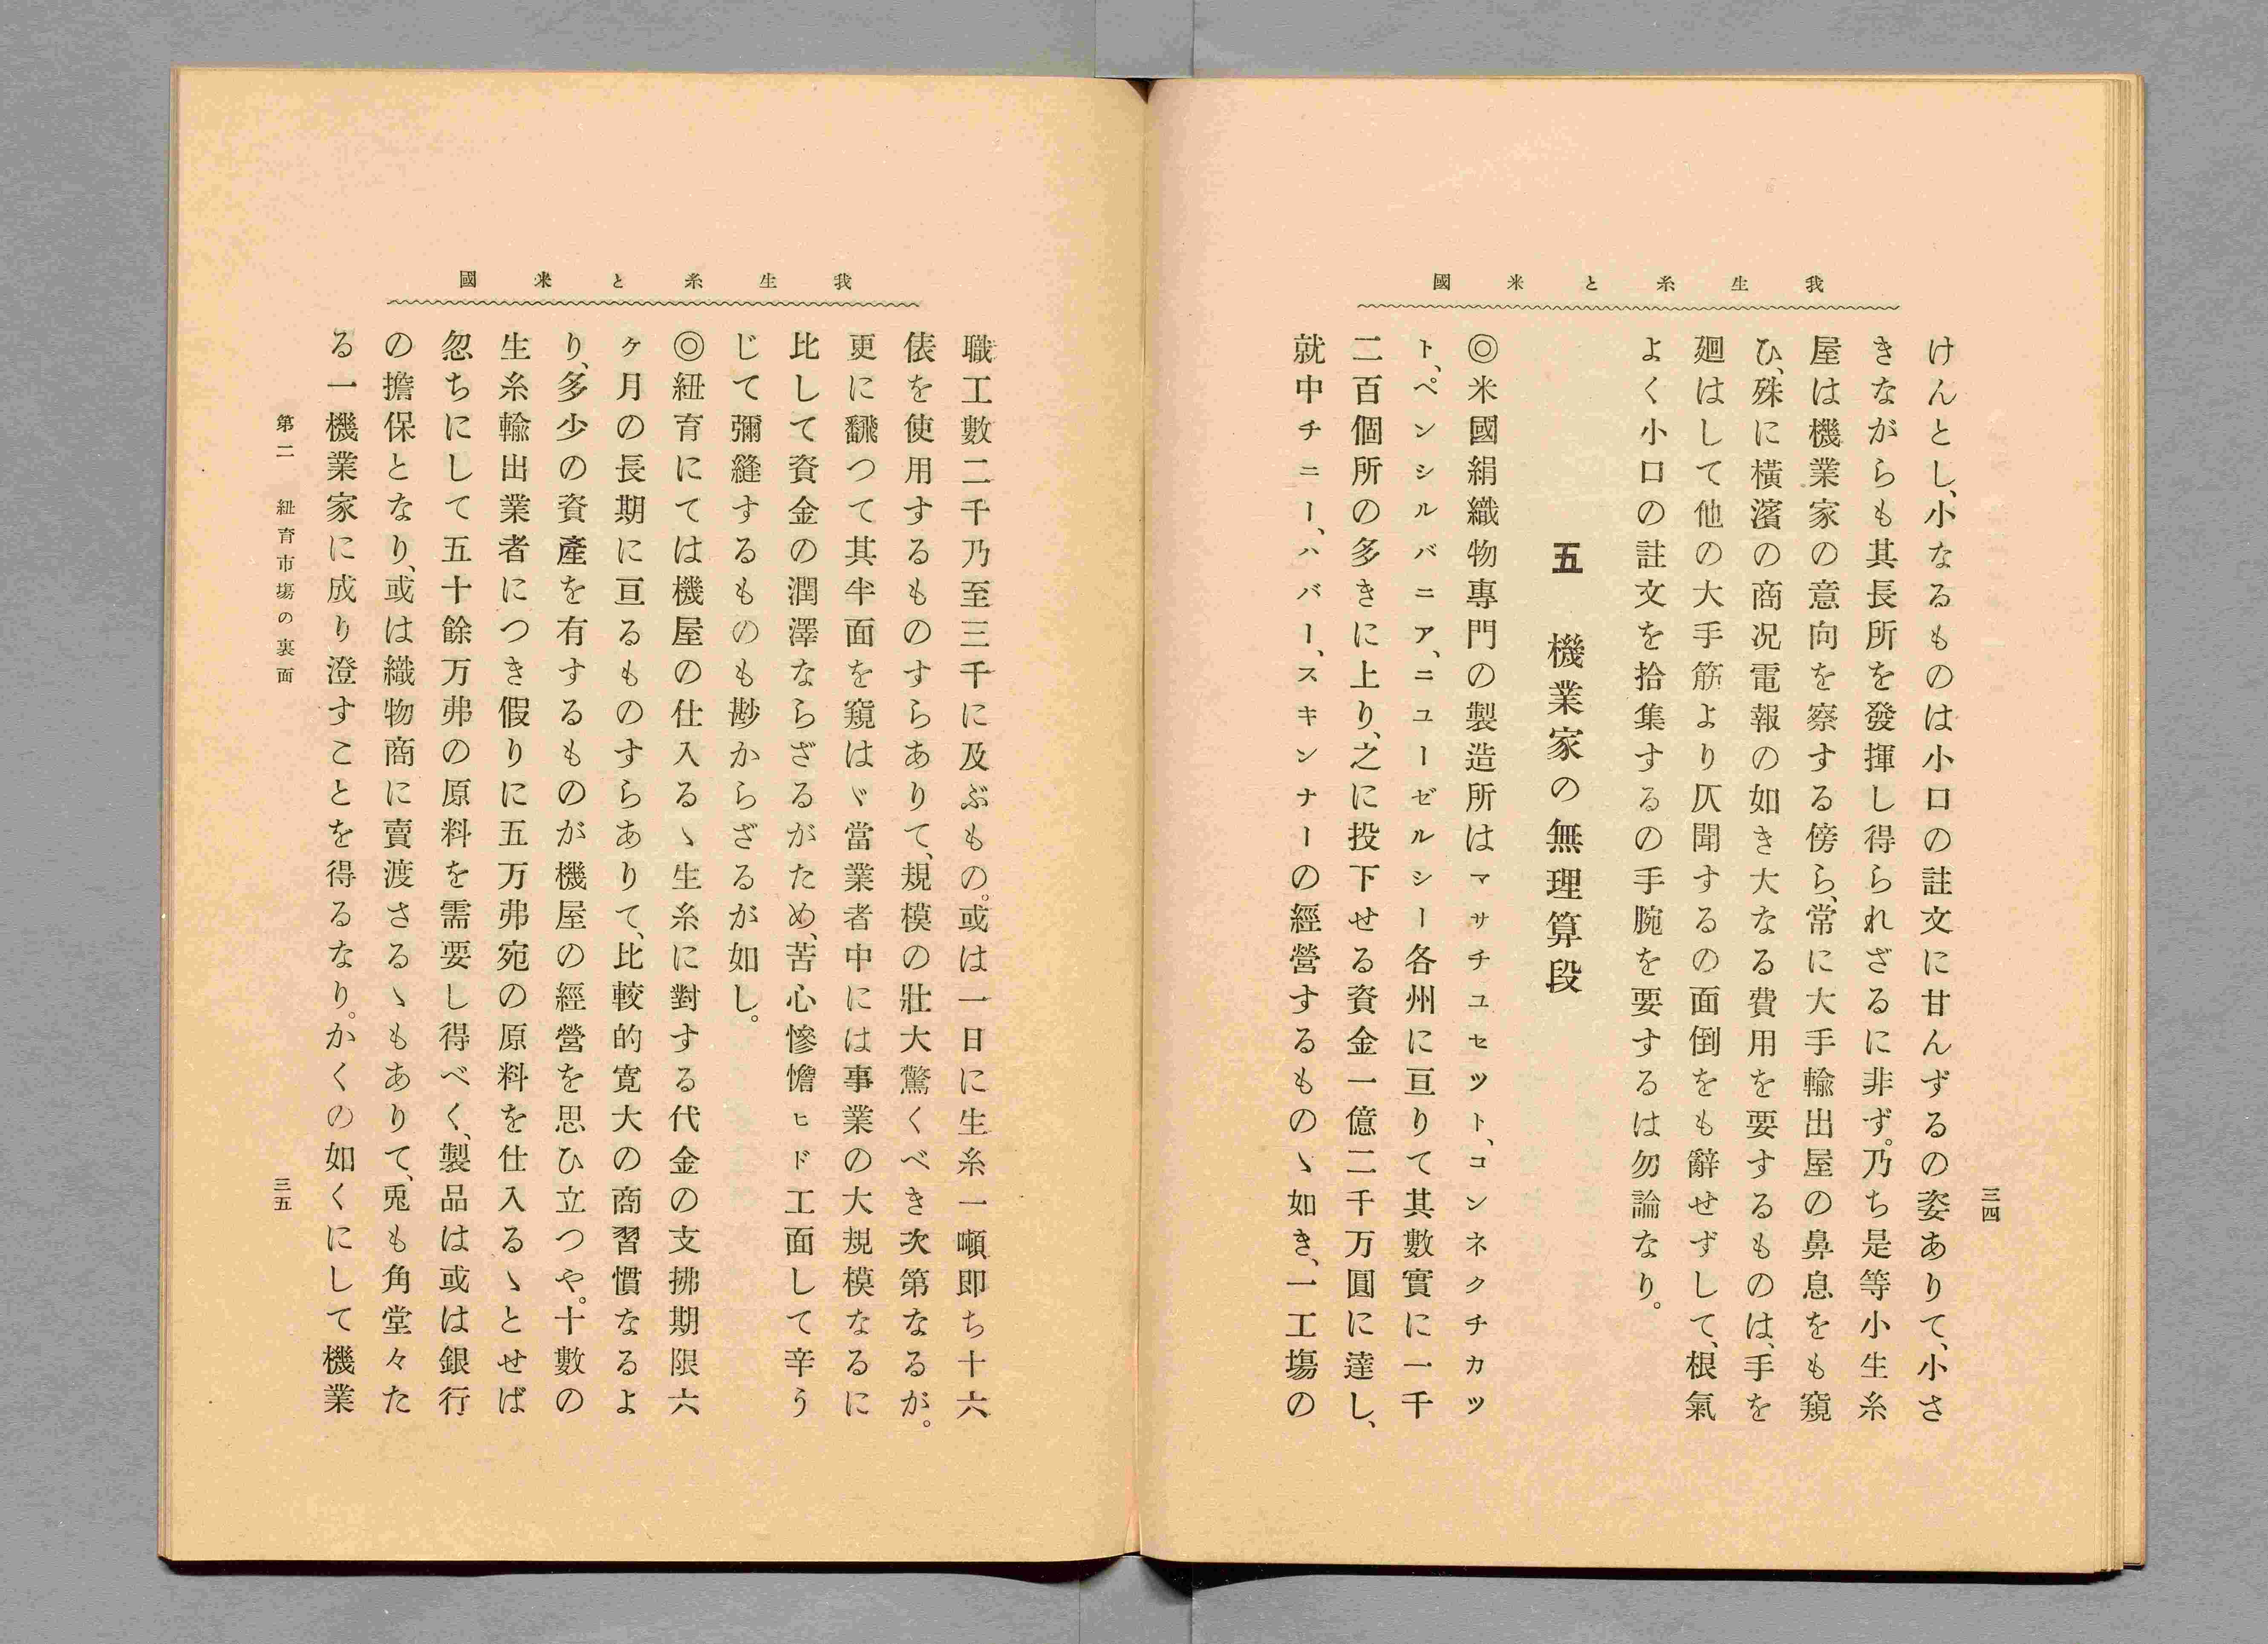 我生糸と米國
三四
けんとし、小なるものは小口の註文に甘んずるの姿ありて、小さ
きながらも其長所を發揮し得られざるに非ず。乃ち是等小生糸
屋は機業家の意向を察する傍ら、常に大手輸出屋の鼻息をも窺
ひ、殊に横濱の商况電報の如き大なる費用を要するものは、手を
廻はして他の大手筋より仄聞するの面倒をも辭せずして、根氣
よく小口の註文を拾集するの手腕を要するは勿論なり。
五　機業家の無理算段
◎米國絹織物專門の製造所はマサチユセツト、コンネクチカツ
ト、ペンシルバニア、ニユーゼルシー各州に亘りて其數實に一千
二百個所の多きに上り、之に投下せる資金一億二千万圓に達し、
就中チニー、ハバー、スキンナーの經營するものゝ如き、一工場の
我生糸と米國
職工數二千乃至三千に及ぶもの。或は一日に生糸一噸即ち十六
俵を使用するものすらありて、規模の壯大驚くべき次第なるが。
更に飜つて其半面を窺はゞ當業者中には事業の大規模なるに
比して資金の潤澤ならざるがため、苦心慘憺ヒド工面して辛う
じて彌縫するものも尠からざるが如し。
◎紐育にては機屋の仕入るゝ生糸に對する代金の支拂期限六
ヶ月の長期に亘るものすらありて、比較的寛大の商習慣なるよ
り、多少の資產を有するものが機屋の經營を思ひ立つや。十數の
生糸輸出業者につき假りに五万弗宛の原料を仕入るゝとせば
忽ちにして五十餘万弗の原料を需要し得べく、製品は或は銀行
の擔保となり、或は織物商に賣渡さるゝもありて、兎も角堂々た
る一機業家に成り澄すことを得るなり。かくの如くにして機業
第二　紐育市場の裏面
三五